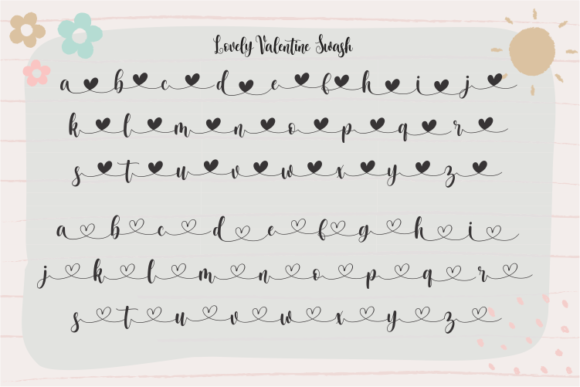 Lovely Valentine Swash
a b c d e f h i j
k l m n o p q r
s t u v w x y z
a b c d e f g h i
j k l m n o p q r
s t u v w x y z